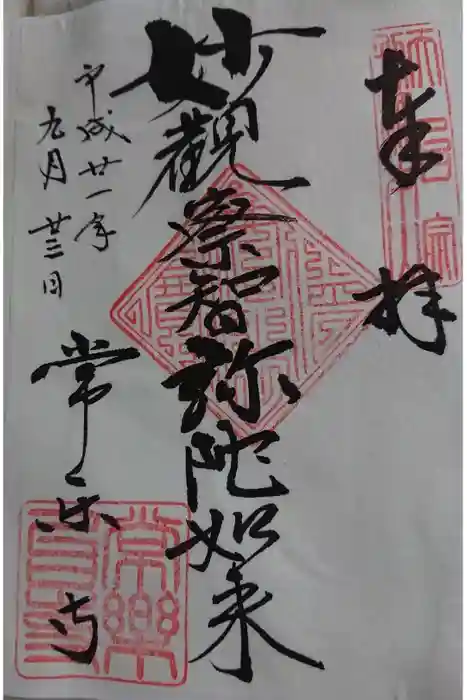 奉拝
妙觀察智弥陀如来
平成廿一年
九月廿三日
常楽寺
常樂